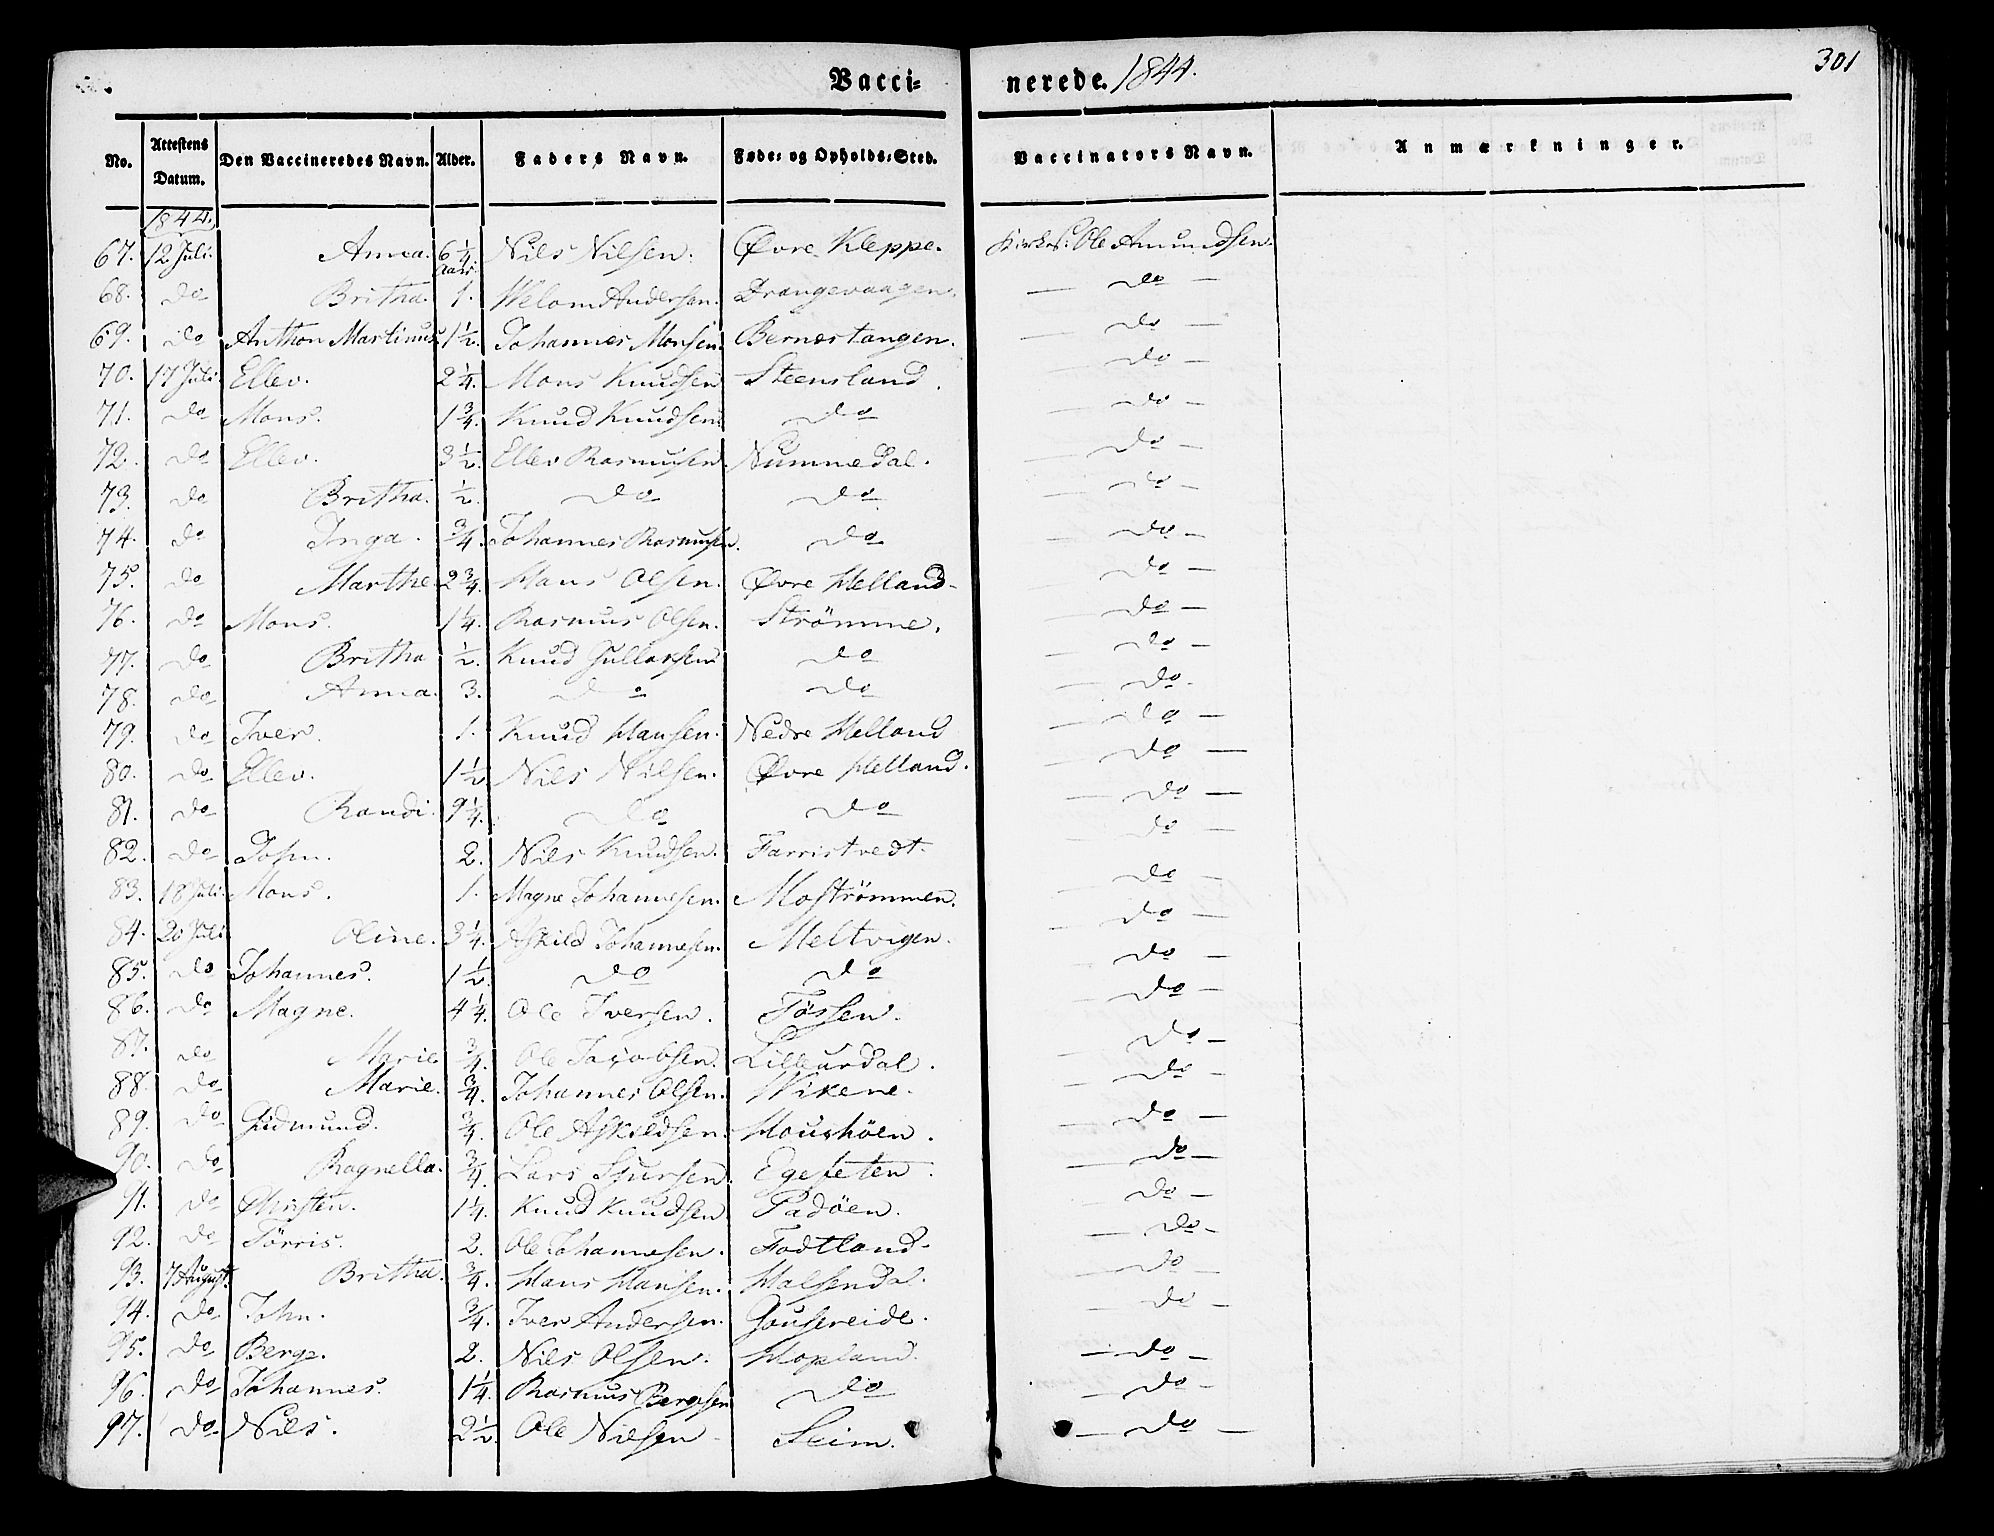 Vacci-
nerede. 1844.
301
No. Attestens Datum. Den Vaccineredes Navn. Alder. Faders Navn. Føde- og Opholds-Sted. Vaccinators Navn. Anmærkninger.
1844.
67. 12 Juli. Anna. 6 1/4 Aar. Nils Nilsen. Øvre Kleppe. Kirkes: Ole Amundsen.
68. do Britha. 1. Andersen. Drangevaagen. — do —
69. do Anthon Martinus 1 1/2. Johannes Monsen. Bernestangen. — do —
70. 17 Juli. Ellev. 2 1/4. Mons Knudsen Steensland. — do —
71. do Mons. 1 3/4. Knud Knudsen. do — do —
72. do Ellev. 3 1/2. Ellev Rasmusen. Nummedal. — do —
73. do Britha. 1/2. do do — do —
74. do Inga. 3/4. Johannes Rasmusen. do — do —
75. do Marthe. 2 3/4. Hans Olsen. Øvre Helland. — do —
76. do Mons. 1 1/4. Rasmus Olsen. Strömme. — do —
77. do Britha 1/2. Knud Gullaksen do — do —
78. do Anna. 3. do do — do —
79. do Iver. 1. Knud Hansen. Nedre Helland — do —
80. do Ellev. 1 1/2 Nils Nilsen. Øvre Helland. — do —
81. do Randi. 9 1/4. do do — do —
82. do John. 2. Nils Knudsen. Farristvedt. — do —
83. 18 Juli. Mons. 1. Magne Johannesen. Moströmmen. — do —
84. 20 Juli. Oline. 3 1/4. Askild Johannesen. Meltvigen. — do —
85. do Johannes. 1 1/2. do do — do —
86. do Magne. 4 1/4. Ole Iversen. Fossen. — do —
87. do Marie 3/4. Ole Jacobsen. Lilleurdal. — do —
88. do Marie. 3/4. Johannes Olsen. Wikene. — do —
89. do Gudmund. 3/4. Ole Askildsen. Houshöen. — do —
90. do Ragnella. 3/4. Lars Sjursen. Egeseten. — do —
91. do Christen. 1 1/4. Knud Knudsen. Padöen. — do —
92. do Törris. 2. Ole Johannesen. Fodtland. — do —
93. 7 August. Britha. 3/4. Hans Hansen. Halsendal. — do —
94. do John. 3/4. Iver Andersen. Gousereide. — do —
95. do Berge. 2. Nils Olsen. Hopland. — do —
96. do Johannes. 1 1/4. Rasmus Bergesen do — do —
97. do Nils. 2 1/2. Ole Nilsen Seim. — do —